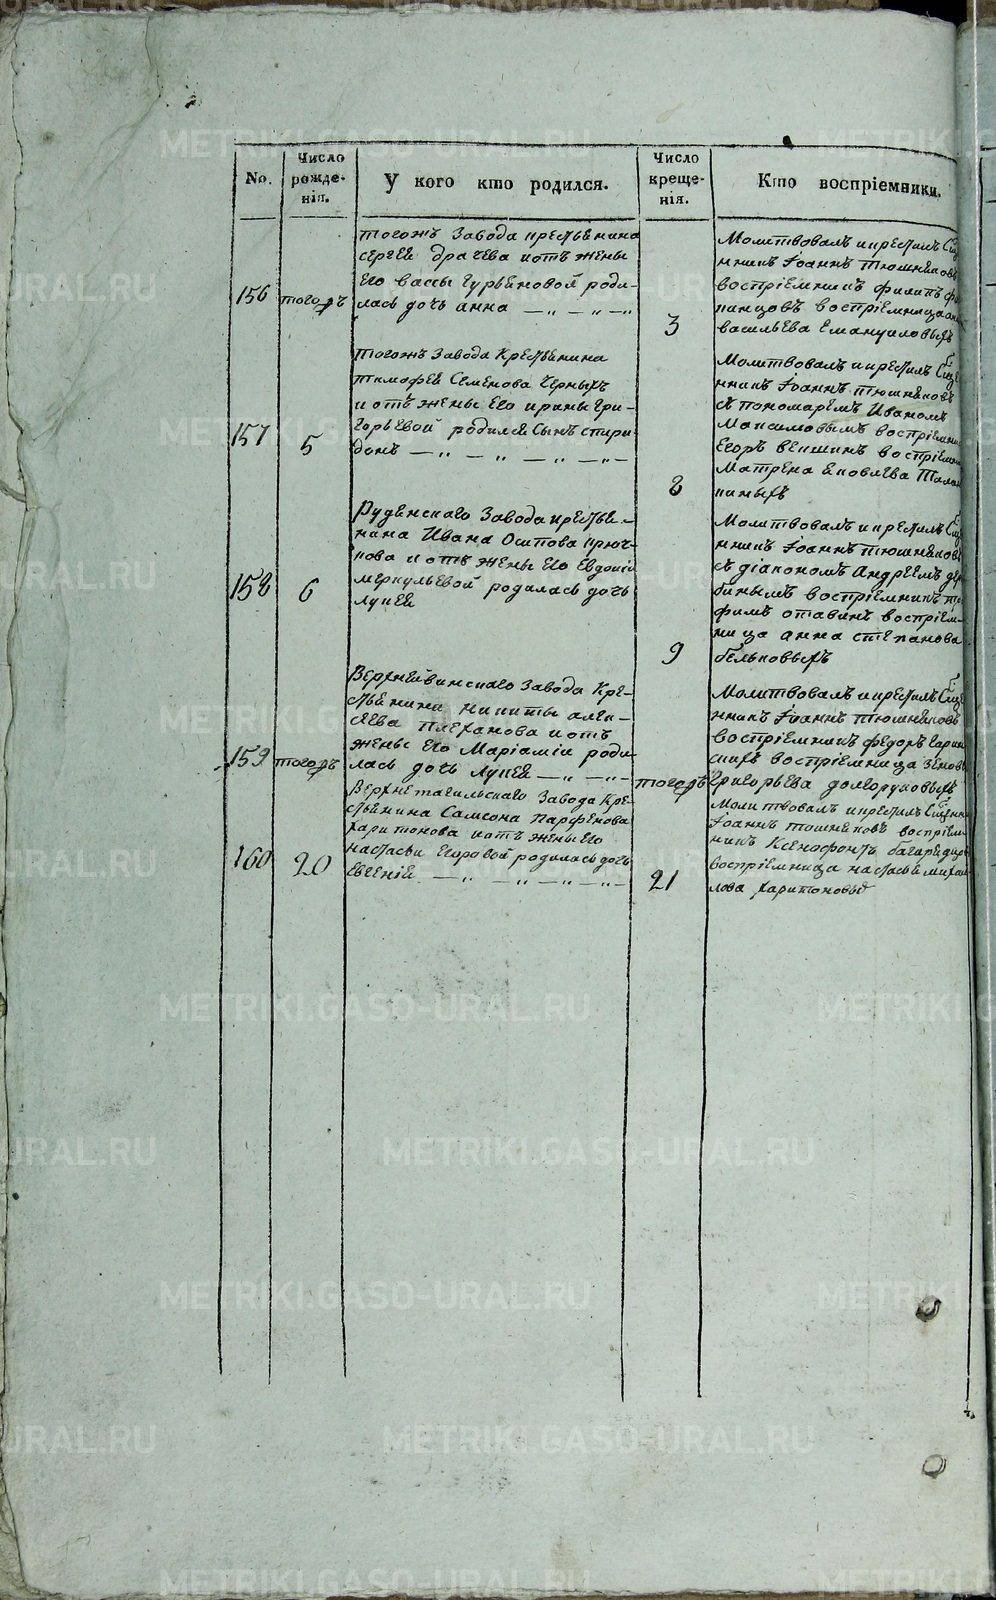 METRIKI.GASO-URAL.RU
No.
Число
рожде-
нія.
У кого кто родился.
Число
креще-
нія.
Кто воспріемники.
156
тогожъ
тогожъ Завода крестьянина
сергея драчева иотъ жены
Его вассы Гурьяновой роди-
лась дочь анна — „ — „ — „
3
Молитвовалъ икрестилъ Свще
нникъ Іоаннъ Тюшняковъ
воспріемникъ филипъ
воспріемница
васильева Емануиловыхъ
157
5
тогожъ Завода Крестьянина
тимофея Семенова Черныхъ
и отъ жены Его ирины гри-
горьевой родился Сынъ спири-
донъ — „ — „ — „ —
8
Молитвовалъ икрестилъ Свще
нникъ Іоаннъ тюшняковъ
съ пономаремъ Иваномъ
Максимовымъ воспріемни
Егоръ векшинъ воспріемн
Матрена яковлева
158
6
Рудянскаго Завода крестья-
нина Ивана Осипова крюч-
кова и отъ жены Его Евдокіи
меркульевой родилась дочь
лукея
9
Молитвовалъ икрестилъ Свще
нникъ Іоаннъ тюшняковъ
съ діакономъ Андреемъ
воспріемникъ
воспріем-
ница анна степанова
бельковыхъ
159
тогожъ
Верхнейвинскаго Завода Кре-
стьянина никиты алек-
сеева Плеханова иотъ
жены Его Маріаміи роди-
лась дочь лукея — „ — „ —
тогожъ
Молитвовалъ икрестилъ Свще
нникъ Іоаннъ тюшняковъ
воспріемникъ федоръ
воспріемница
григорьева долгоруковыхъ
160
20
Верхнетагильскаго Завода Кре-
стьянина Самсона Парфенова
харитонова иотъ жены Его
настасьи Егоровой родилась дочь
Евгенія — „ — „ — „ —
21
Молитвовалъ икрестилъ Свщенн
Іоаннъ тюшняковъ воспріем-
никъ Ксенофонтъ
воспріемница настасья михай-
лова харитоновы